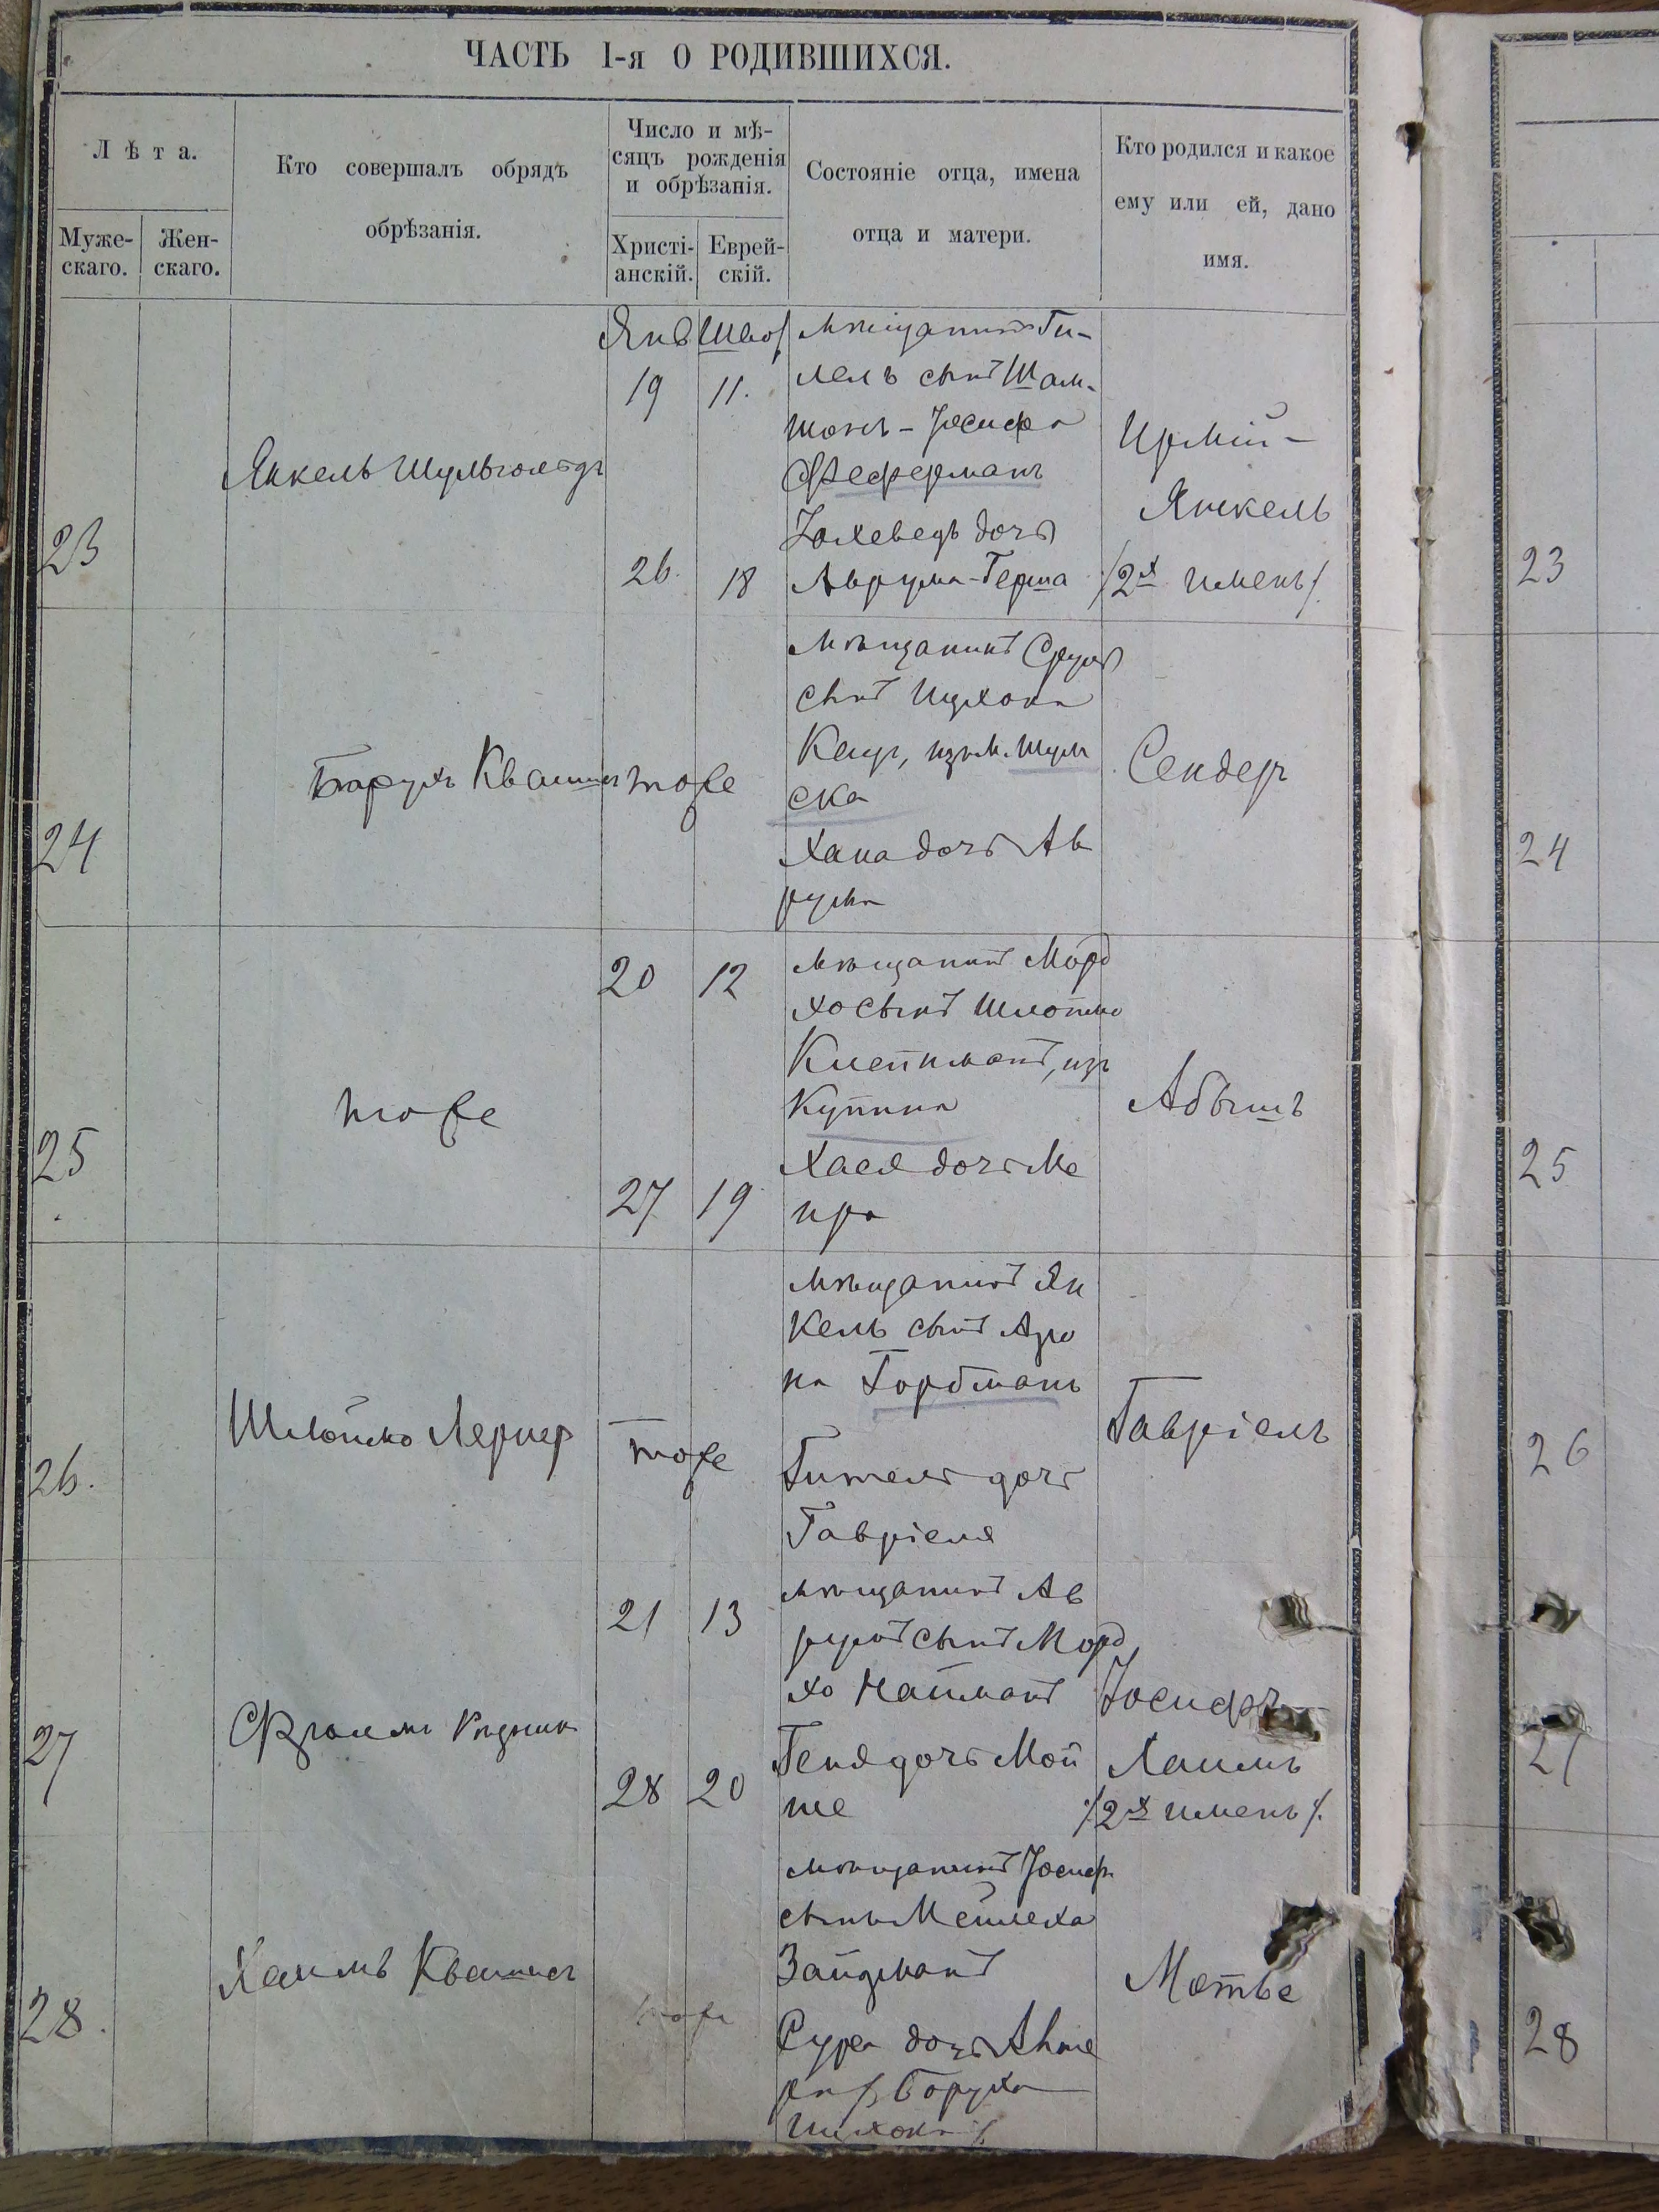 ЧАСТЬ I-я О РОДИВШИХСЯ.
Лѣта.
Муже-
скаго.
Жен-
скаго.
Кто совершалъ обрядъ
обрѣзанія.
Число и мѣ-
сяцъ рожденія
и обрѣзанія.
Христі-
анскій.
Еврей-
скій.
Состояніе отца, имена
отца и матери.
Кто родился и какое
ему или ей, дано
имя.
23
Янкель
Янв
19
26.
11.
18
мѣщанинъ Ги-
лель сынъ Шам-
шонъ-Іосифа
Феферманъ
Іохеведъ дочь
Аврума-Герша
Янкель
/2х именъ/.
23
24
Барухъ
тоже
мѣщанинъ Сруль
сынъ Ицхока
Кац, изъ м. Шум
ска
Хана дочь Ав
рума
Сендеръ
24
25
тоже
20
27
12
19
мѣщанинъ Морд
хо сынъ Шлоймо
Клейманъ, изъ
Купина
Хася дочь Ме
ира
Абышъ
25
26.
Шлоймо Лернер
тоже
мѣщанинъ Ян
кель сынъ Азро
на Гордманъ
Гитель дочь
Гавріеля
Гавріель
26
27
21
28
13
20
мѣщанинъ Ав
румъ сынъ Морд
хо Найманъ
Геня дочь Мой
ше
Іосифъ
Хаимъ
/2х именъ/.
27
28.
Хаимъ
тоже
мѣщанинъ Іосифъ
сынъ Мейлеха
Зайдманъ
Сура дочь
Боруха
Мотье
28